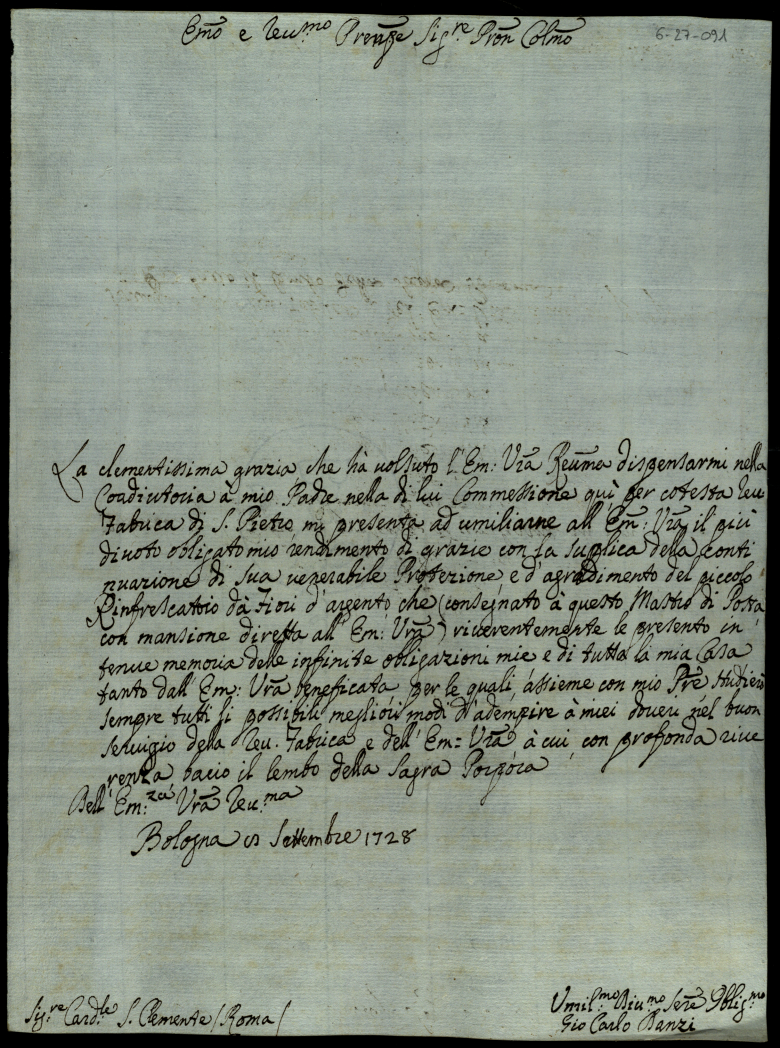 Emõ e Reu.mo Prenpe Sig.re Pron Colmõ
6-27-091
La clementissima grazia che hà uolsuto l'Em: Vrã Reũma dispensarmi nella
Coadiutoria à mio Padre nella di lui Commessione quì per cotesta Reu
Fabrica di S. Pietro mi presenta ad umiliarne all'Em: Vrã il più
diuoto obligato mio rendimento di grazie con la suplica della conti
nuazione di sua venerabile Protezione e d'agradimento del piccolo
Rinfrescatoio dà Fiori d'argento che (consegnato à questo Mastro di Posta
con mansione diretta all'Em: Vrã) riuerentemente le presento in
tenue memoria delle infinite obligazioni mie e di tutta la mia Casa
tanto dall'Em: Vrã beneficata per le quali, assieme con mio Prẽ studierò
sempre tutti li possibili megliori modi d'adempire à miei doueri nel buon
seruigio della Reu. Fabrica e dell'Em: Vrã, à cui con profonda riue
renza bacio il lembo della Sagra Porpora
Dell'Em:za Vrã Reu.ma
Bologna Settembre 1728
Sig.re Card.le S. Clemente / Roma /
Vmil.mo Diu.mo Serẽ Oblig.mo
Gio Carlo Banzi